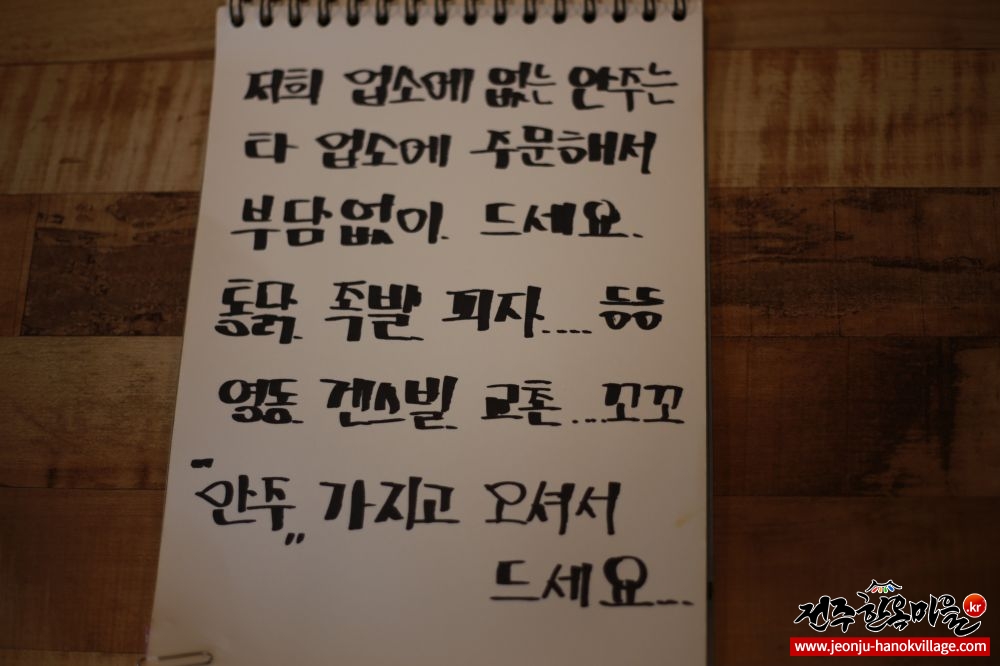 저희 업소에 없는 안주는
타 업소에 주문해서
부담없이. 드세요.
통닭. 족발 피자..... 등등
영동. 겐스빌. 교촌...꼬꼬
"안주" 가지고 오셔서
드세요...
전주한옥마을.kr
www.jeonju-hanokvillage.com